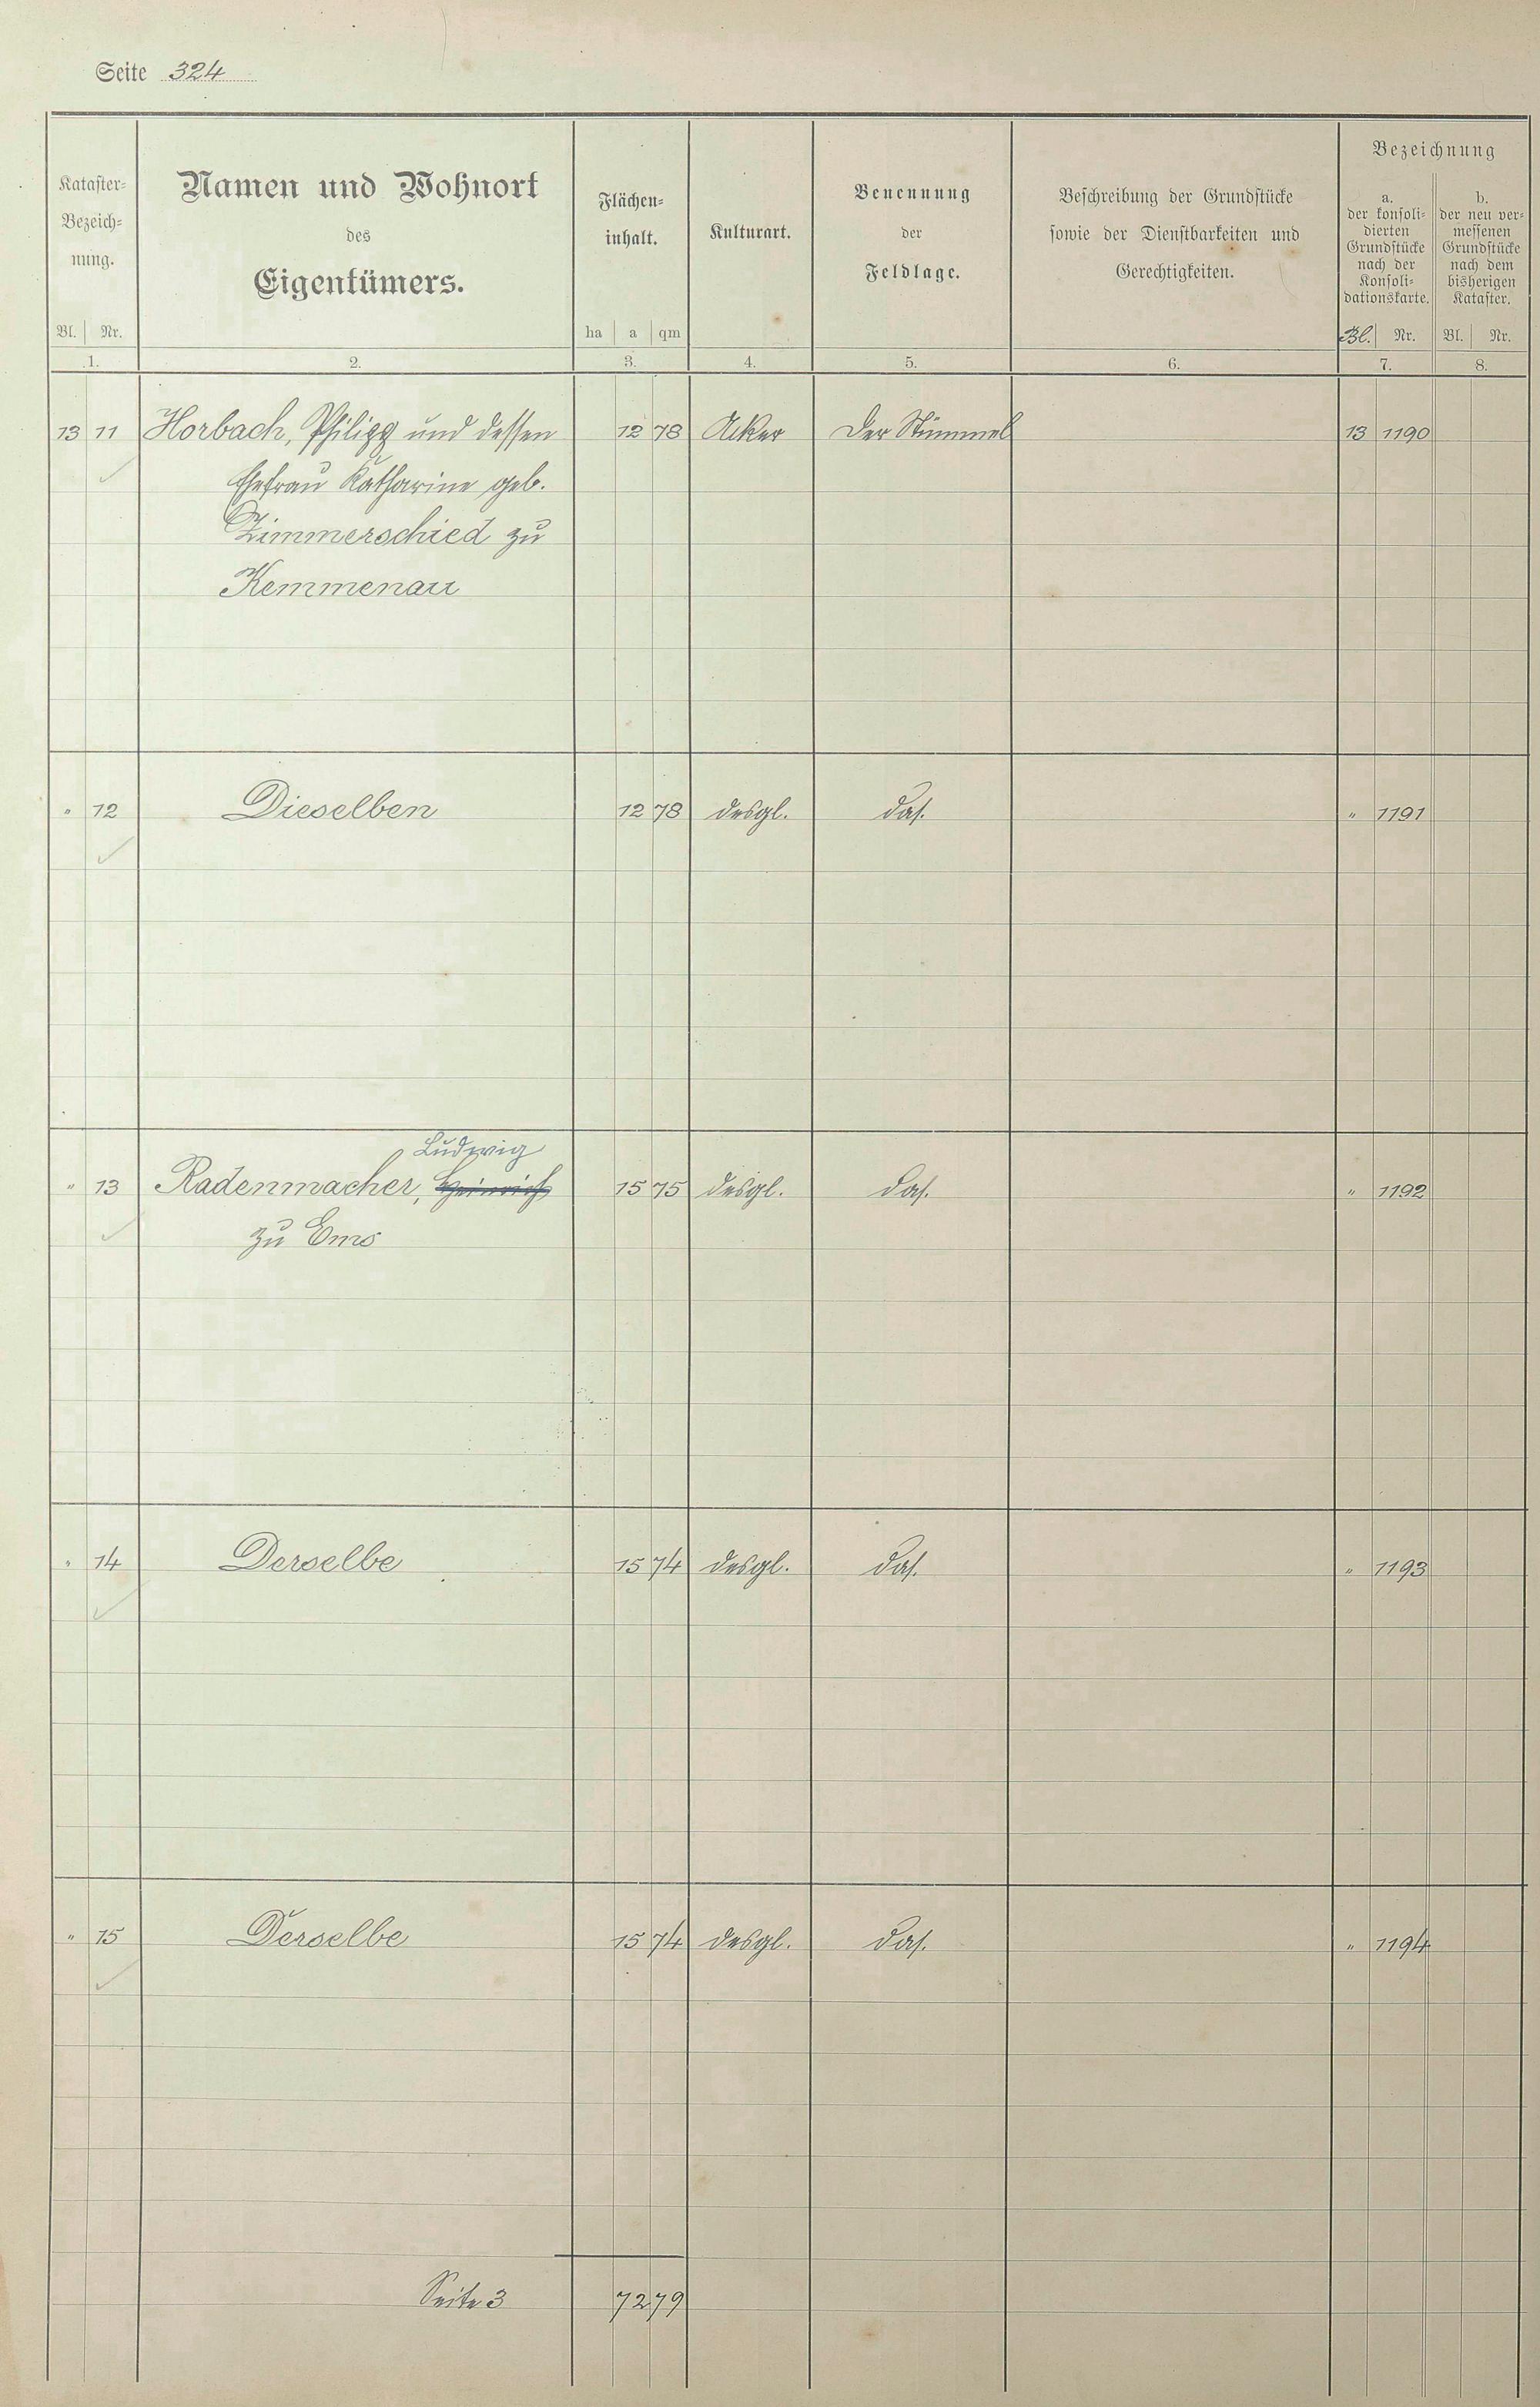 Seite 324
Kataster-
Bezeich-
nung.
Bl. Nr.
1.
Namen und Wohnort
des
Eigentümers.
2.
Flächen-
inhalt.
ha a qm
3.
Kulturart.
4.
Benennung
der
Feldlage.
5.
Beschreibung der Grundstücke
sowie der Dienstbarkeiten und
Gerechtigkeiten.
6.
Bezeichnung
a.
der konsoli-
dierten
Grundstücke
nach der
Konsoli-
dationskarte.
Bl. Nr.
7.
b.
der neu ver-
messenen
Grundstücke
nach dem
bisherigen
Kataster.
Bl. Nr.
8.
13 11 Horbach, Philipp und dessen 12 78 Acker Der Stümmel 13 1190
Ehefrau Katharine geb.
Zimmerschied zu
Kemmenau
" 12 Dieselben 12 78 desgl. das. " 1191
Ludwig
" 13 Radenmacher, Heinrich 15 75 desgl. das. " 1192
zu Ems
" 14 Derselbe 15 74 desgl. das. " 1193
" 15 Derselbe 15 74 desgl. das. " 1194
Seite 3 72 79